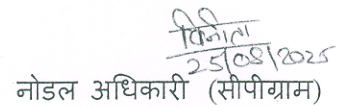 विनीता
25/08/2025
नोडल अधिकारी (सीपीग्राम)